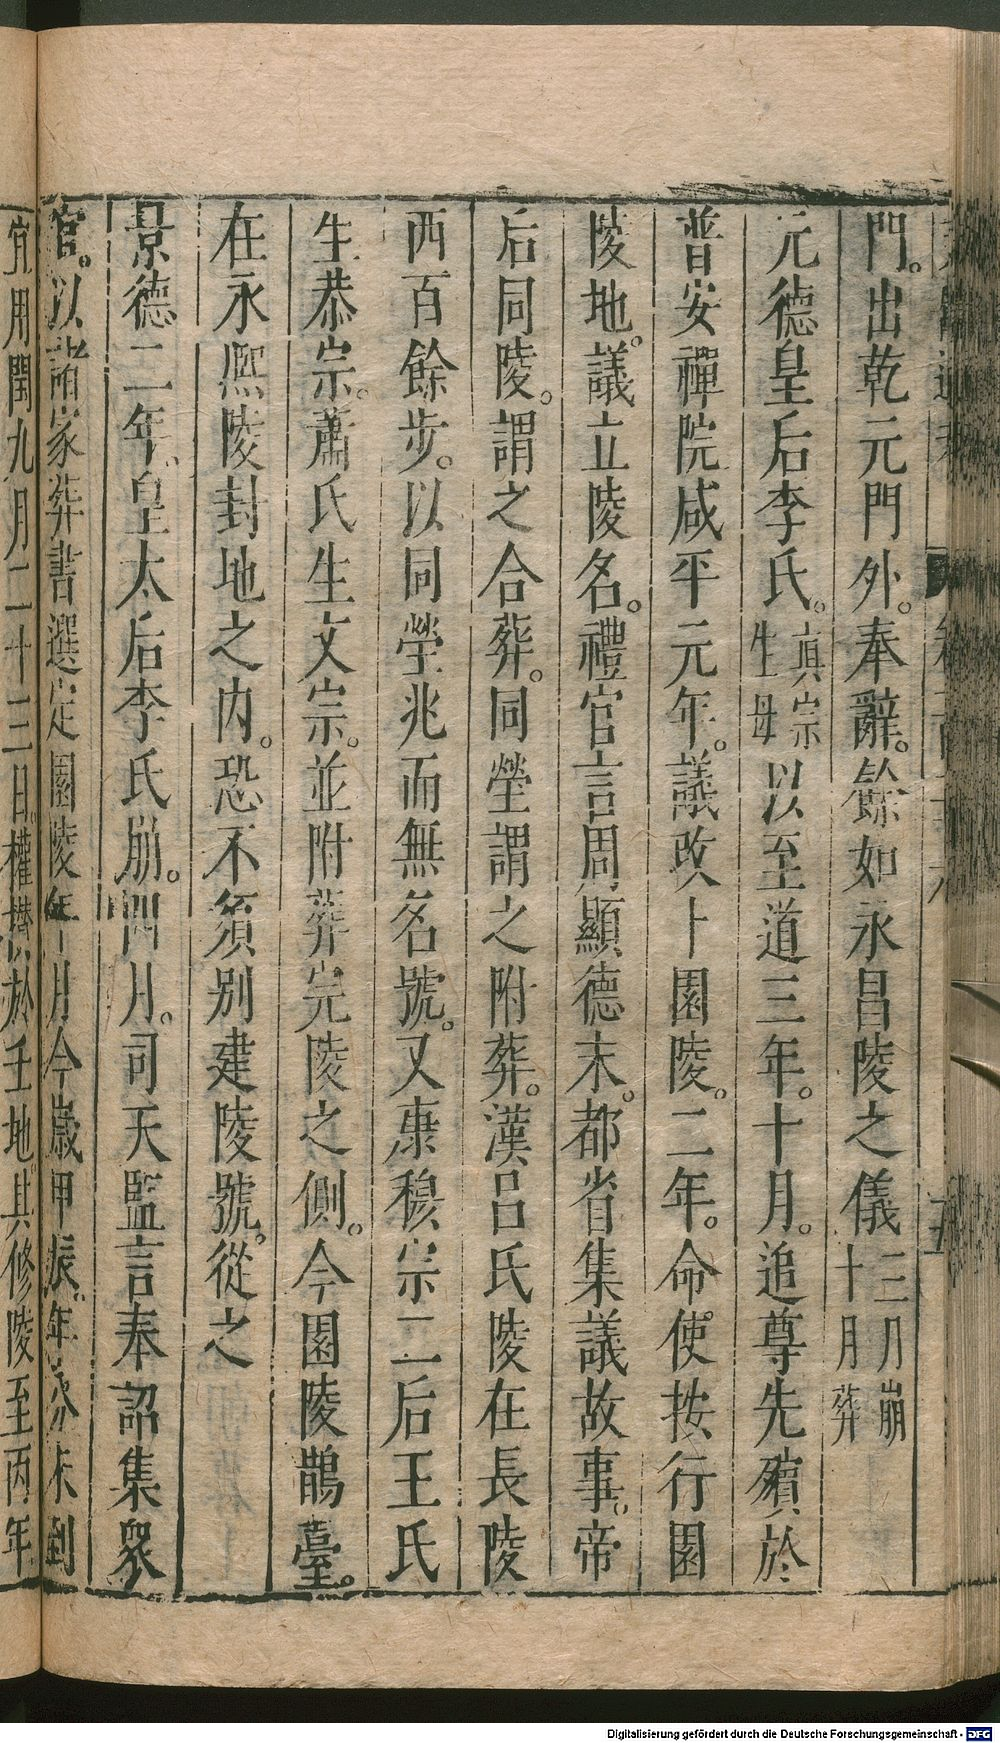 門。出乾元門外。奉辭。餘如永昌陵之儀三月崩十月葬
元德皇后李氏。真宗生母以至道三年。十月。追尊先殯於
普安禪院咸平元年。議改卜園陵。二年。命使按行園
陵地。議立陵名。禮官言周顯德末。都省集議故事。帝
后同陵。謂之合葬。同塋謂之附葬。漢呂氏陵在長陵
西百餘步。以同塋兆而無名號。又康穆宗二后王氏
生恭宗。蕭氏生文宗。並附葬完陵之側。今園陵鵲臺。
在永熙陵封地之内。恐不須別建陵號。從之
景德二年。皇太后李氏崩。四月。司天監言奉詔集衆
官。以諸家葬書選定園陵年月今歲甲辰。年
宜用閏九月二十三日。權攢於壬地。其修陵至丙午
Digitalisierung gefördert durch die Deutsche Forschungsgemeinschaft - DFG